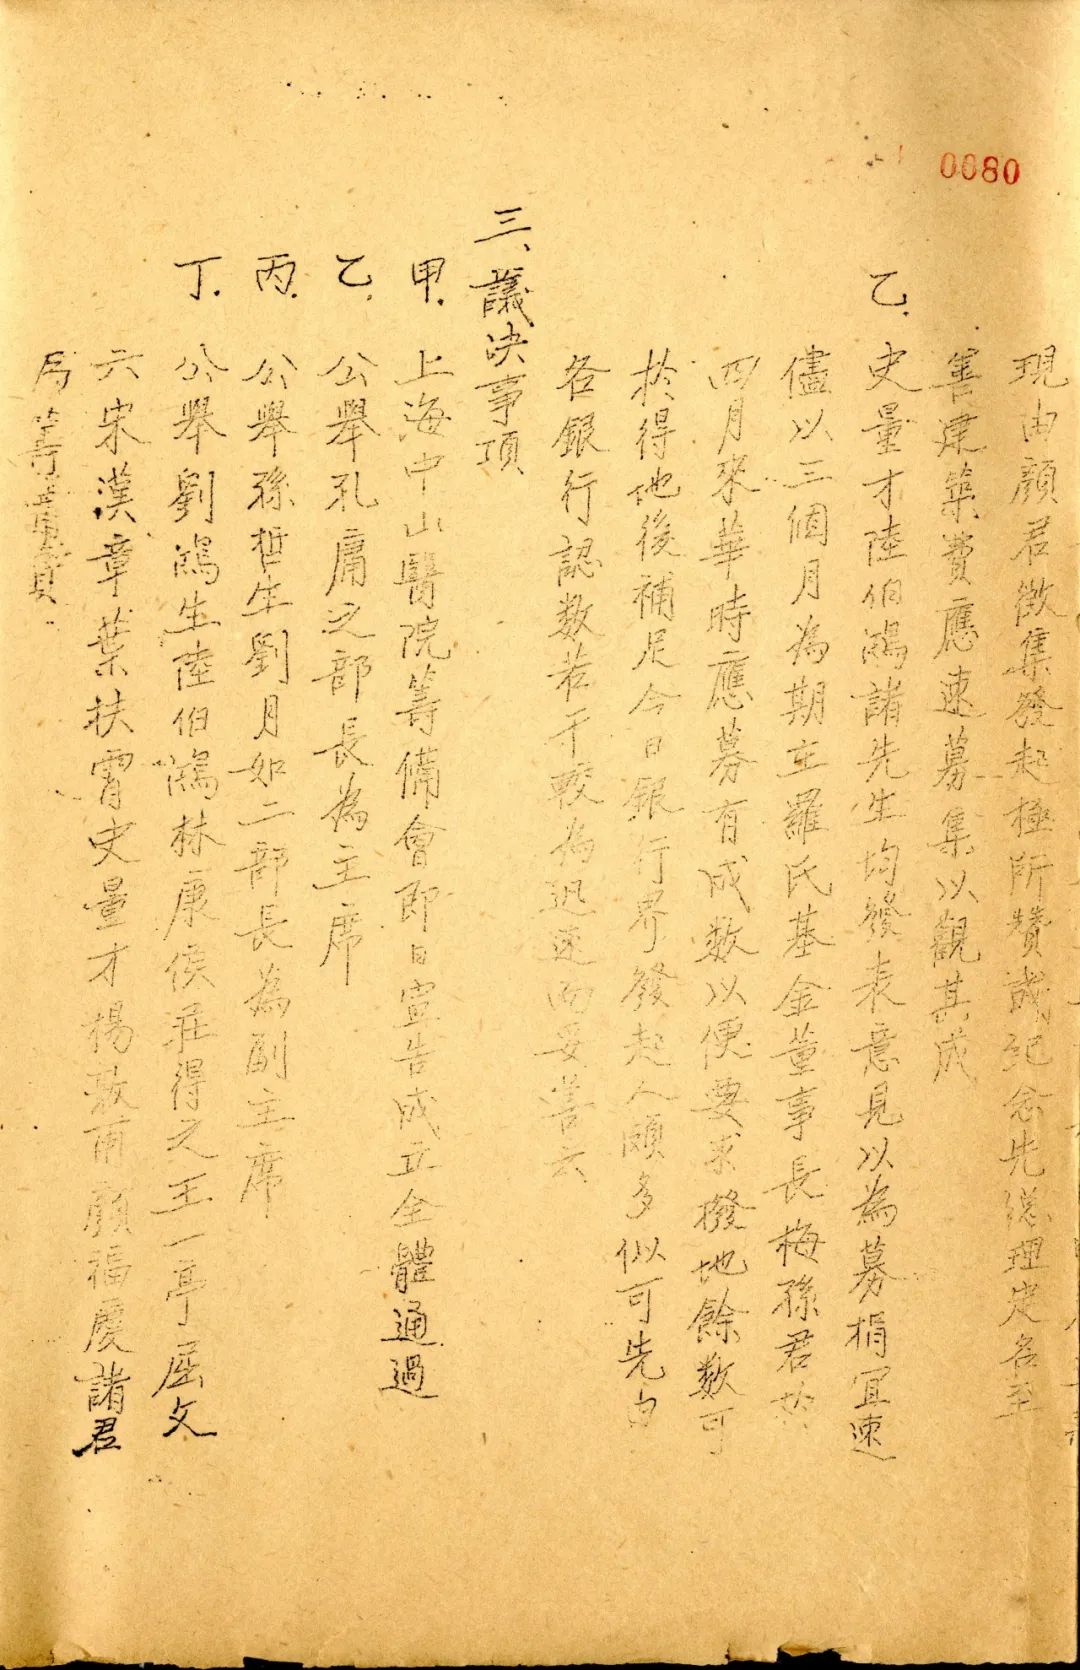 0080
現由顏君徵集發起極所贊 紀念先總理定名至
善建築費應速募集以觀其成
乙.
史量才陸伯鴻諸先生均發表意見以為募捐宜速
儘以三個月為期立羅氏基金董事長梅孫君於
四月來華時應募有成数以便要求撥地餘数可
於得地後補足今日銀行界發起人頗多似可先由
各銀行認数若干較為迅速而妥善云
三、議決事項
甲. 上海中山醫院籌備會即日宣告成立全體通過
乙. 公舉孔庸之部長為主席
丙. 公舉孫哲生劉月如二部長為副主席
丁. 公舉劉鴻生陸伯鴻林康侯莊得之王一亭屈文
六宋漢章葉扶霄史量才楊敦甫顏福慶諸君
為籌備員.